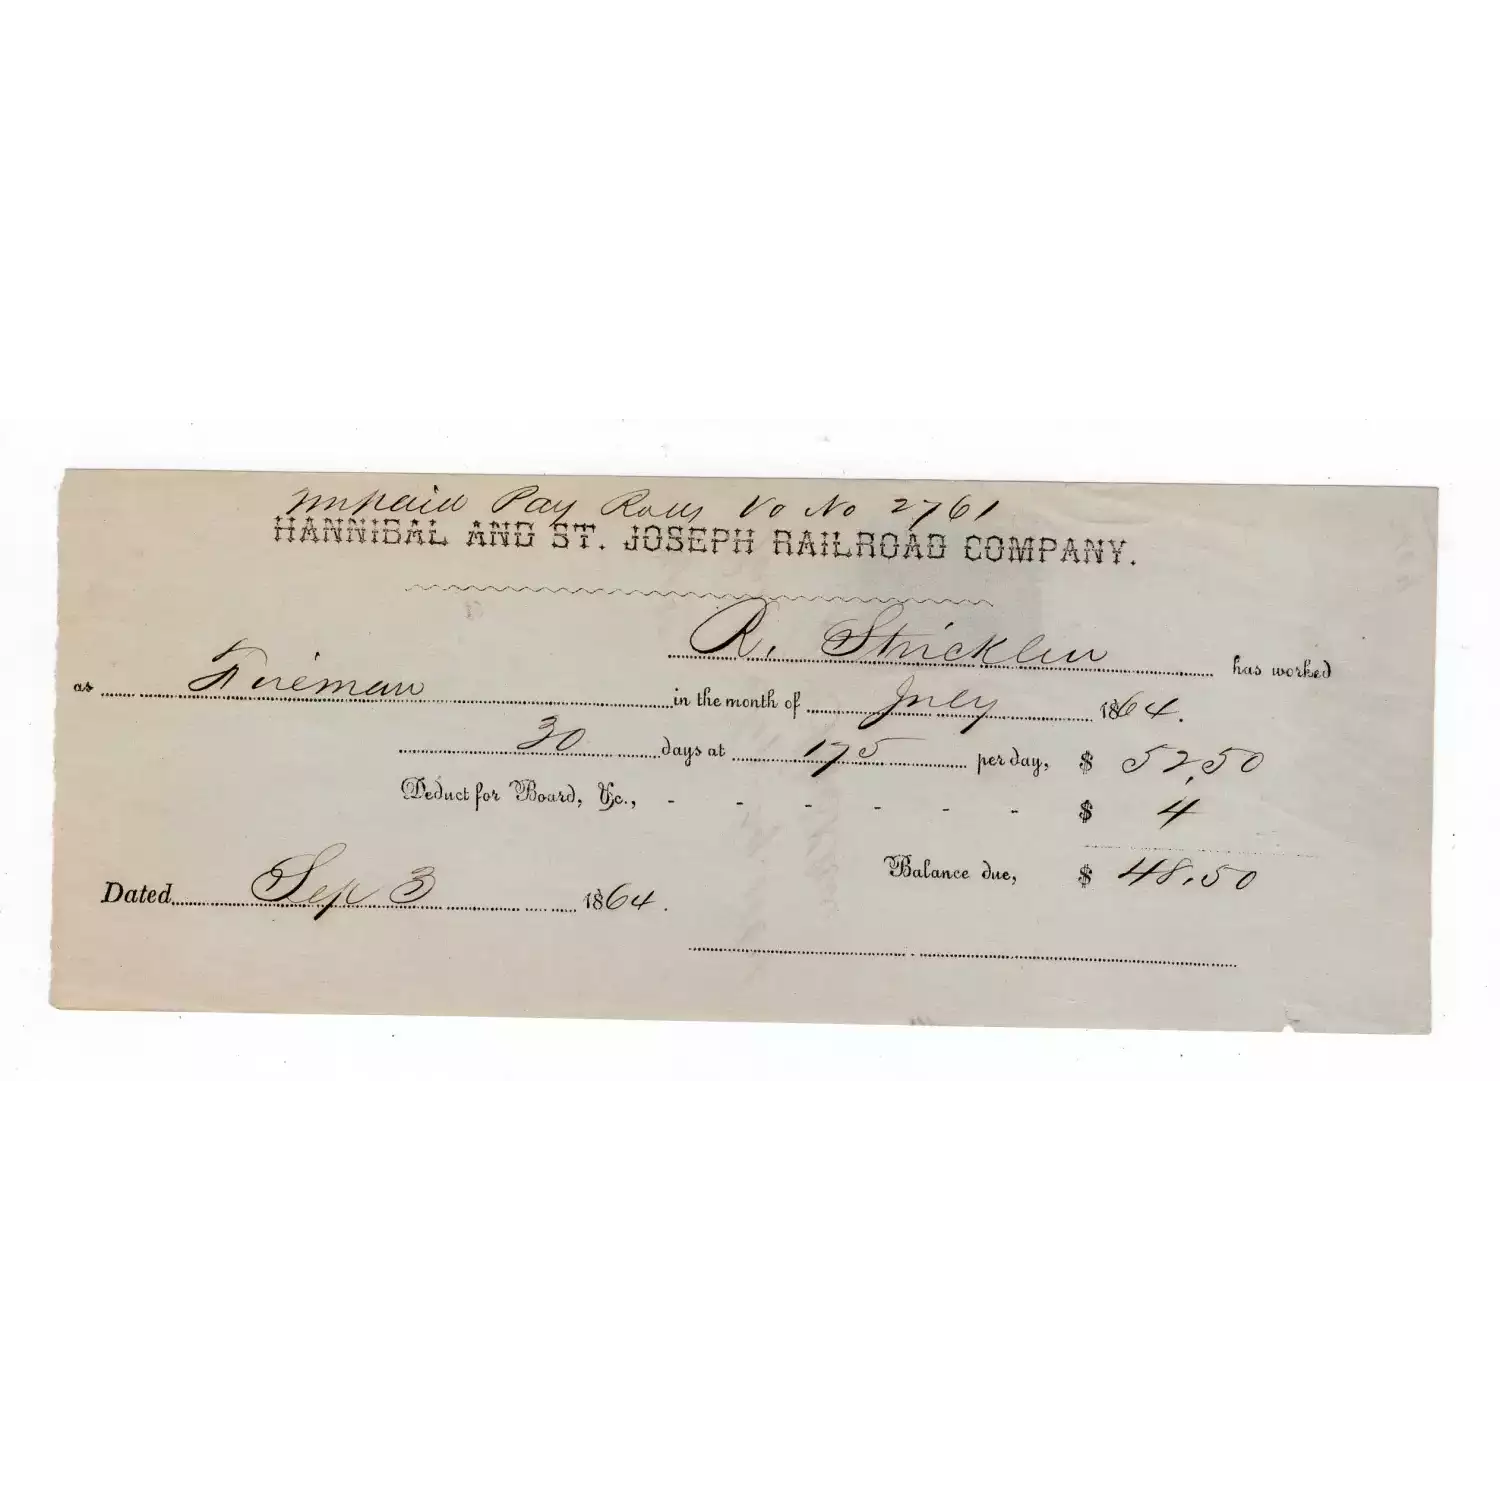 Unpaid Pay Rolls Vo No 2761
HANNIBAL AND ST. JOSEPH RAILROAD COMPANY.
R. Stricklen has worked
as Fireman in the month of July 1864.
30 days at 175 per day, $ 52.50
Deduct for Board, &c., - - - - - - $ 4
Balance due, $ 48.50
Dated Sep 3 1864.